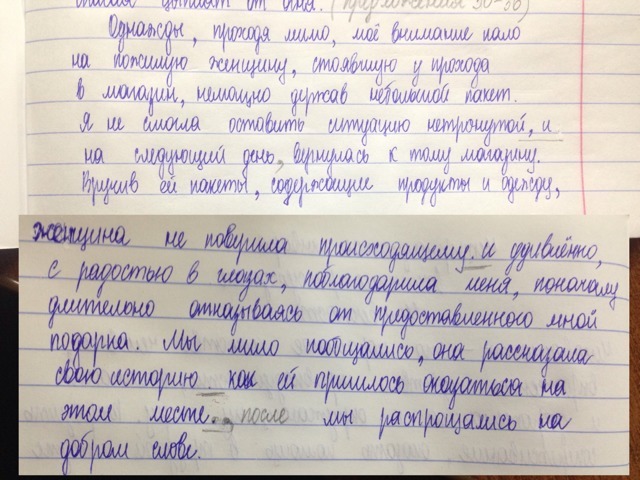 от огня. (предложения 30-36)
Однажды, проходя мимо, моё внимание пало
на пожилую женщину, стоявшую у прохода
в магазин, немощно держав небольшой пакет.
Я не смогла оставить ситуацию нетронутой, и
на следующий день, вернулась к тому магазину.
Вручив ей пакеты, содержащие продукты и одежду,
женщина не поверила происходящему. и удивлённо,
с радостью в глазах, поблагодарила меня, поначалу
длительно отказываясь от предоставленного мной
подарка. Мы мило пообщались, она рассказала
свою историю как ей пришлось оказаться на
этом месте. после мы распрощались на
добром слове.